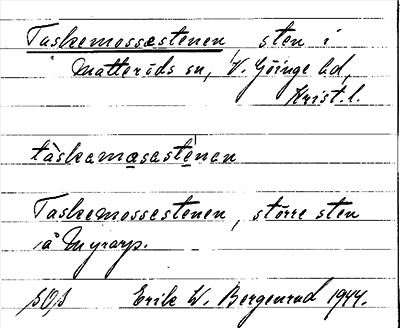 Taskemossestenen, sten i
Matteröds sn, V. Göinge hd,
Krist. l.
tàskamåsastenen
Taskemossestenen, större sten
å Myrarp.
SOS Erik W. Bergenrud 1944.